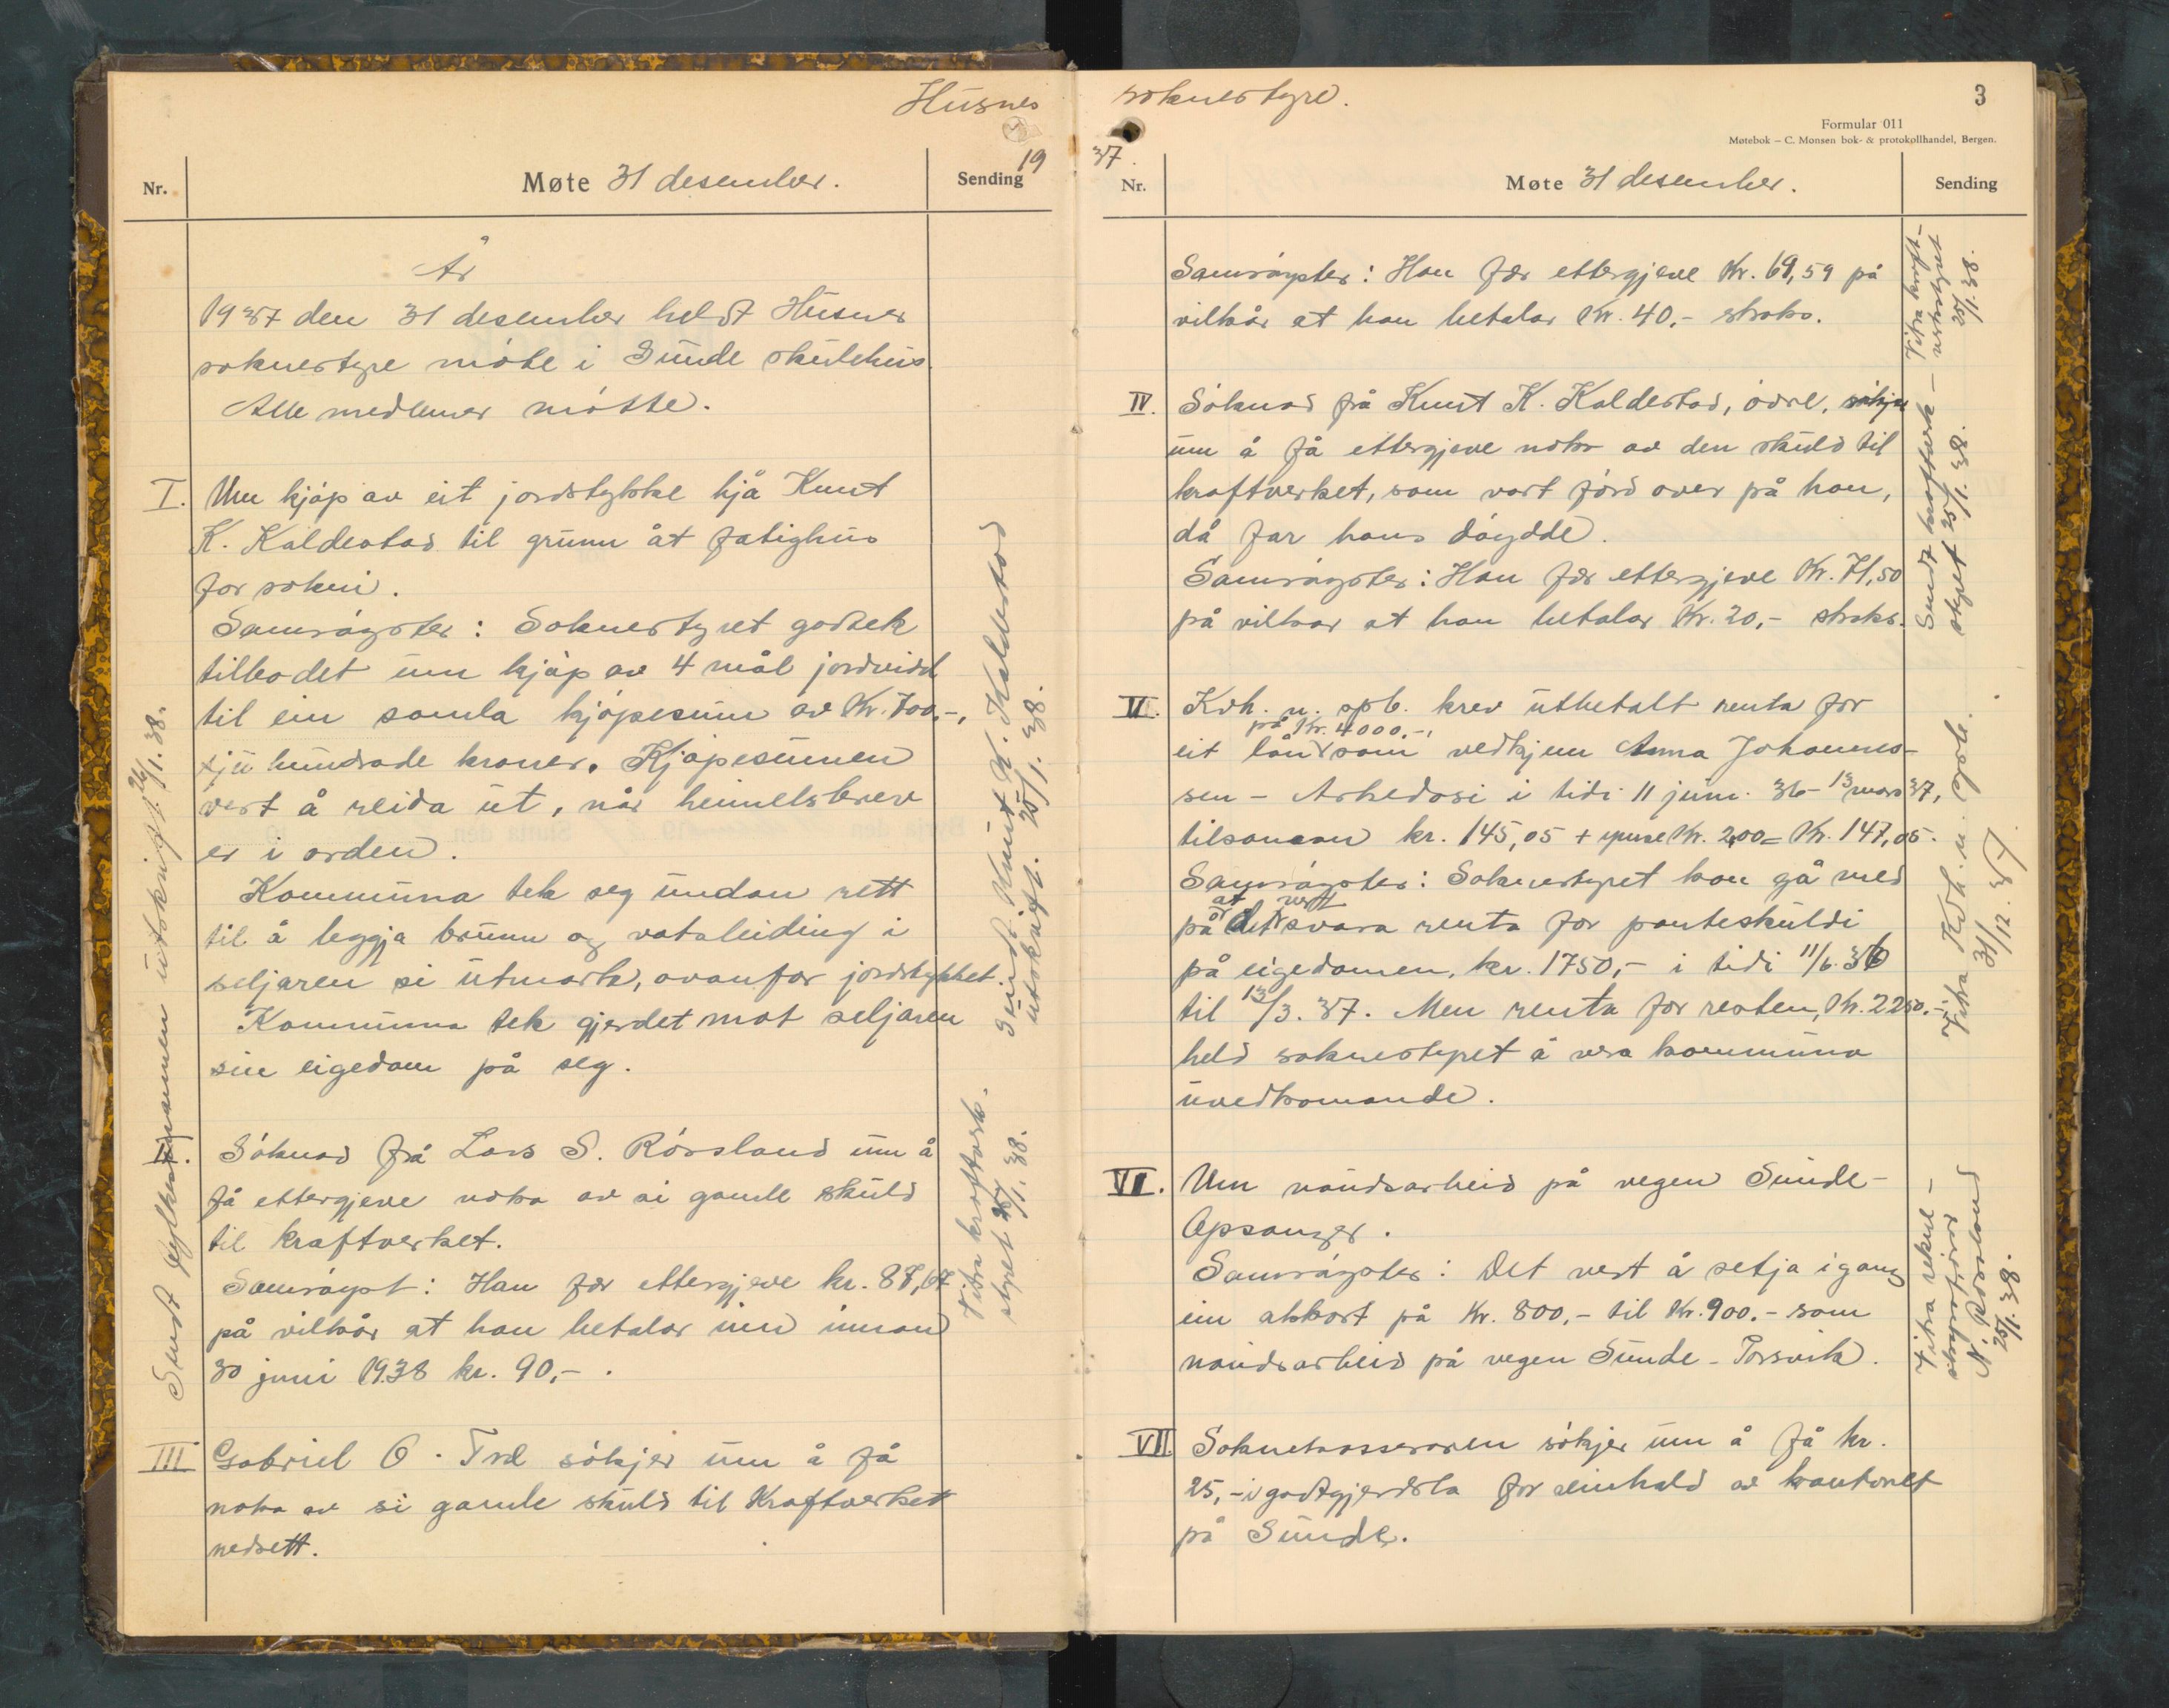 Husnes
Nr.
Møte 31 desember.
Sending
19
År
1937 den 31 desember heldt Husnes
soknestyre møte i Sunde skulehus.
Alle medlemer møtte.
I. Um kjøp av eit jordstykke hjå Knut
K. Kaldestad til grunn åt fatighus
for sokni.
Samrøystes: Soknestyret godtek
tilbodet um kjøp av 4 mål jordvidd
til ein samla kjøpesum av Kr. 700,-,
sju hundrade kroner. Kjøpesummen
vert å reida ut, når heimelsbrev
er i orden.
Kommuna tek seg undan rett
til å leggja brunn og vatsleiding i
seljaren si utmark, ovanfor jordstykket.
Kommuna tek gjerdet mot seljaren
sin eigedom på seg.
Sendt Knut K. Kaldestad
utskrift. 25/1. 38.
Sendt fylkesmannen utskrift 26/1. 38.
II. Søknad frå Lars S. Røssland um å
få ettergjeve noko av si gamle skuld
til kraftverket.
Samrøyst: Han fær ettergjeve kr. 88,67
på vilkår at han betalar inn innan
30 juni 1938 kr. 90,- .
Vitra kraftverk-
styret 25/1. 38.
III Gabriel O. Tvæ søkjer um å få
noko av si gamle skuld til Kraftverket
nedsett.
soknestyre.
3
Formular 011
Møtebok – C. Monsen bok- & protokollhandel, Bergen.
37.
Nr.
Møte 31 desember.
Sending
Samrøystes: Han fær ettergjeve Kr. 69,59 på
vilkår at han betalar Kr. 40,- straks.
Vitra kraft-
verkstyret
25/1. 38.
IV. Søknad frå Knut K. Kaldestad, øvre, søkjer
um å få ettergjeve noko av den skuld til
kraftverket, som vart førd over på han,
då far hans døydde.
Samrøystes: Han fær ettergjeve Kr. 71,50
på vilkor at han betalar Kr. 20,- straks.
Sendt kraftverk-
styret 25/1. 38.
V. Kvh. u. spb. krev utbetalt renta for
på Kr. 4000.-,
eit lån som vedkjem Anna Johannes-
sen - Arkedasi i tidi 11 juni 36 - 13 mars 37,
tilsaman kr. 145,05 + Kr. 2,00 = Kr. 147,05.
Samrøystes: Soknestyret kan gå med
på at det vert svara renta for panteskuldi
på eigedomen, kr. 1750,- i tidi 11/6. 36
til 13/3. 37. Men renta for resten, Kr. 2250.-,
held soknestyret å vera kommuna
uvedkomande.
Vitra Kvh. u. spb.
31/12. 37.
VI. Um naudsarbeid på vegen Sunde-
Opsanger.
Samrøystes: Det vert å setja igang
ein akkort på Kr. 800,- til Kr. 900.- som
naudsarbeid på vegen Sunde - Porsvik.
N. Røssland
25/1. 38.
VII. Soknekasseraren søkjer um å få kr.
25,- i godtgjerdsla for reinhald av kontoret
på Sunde.